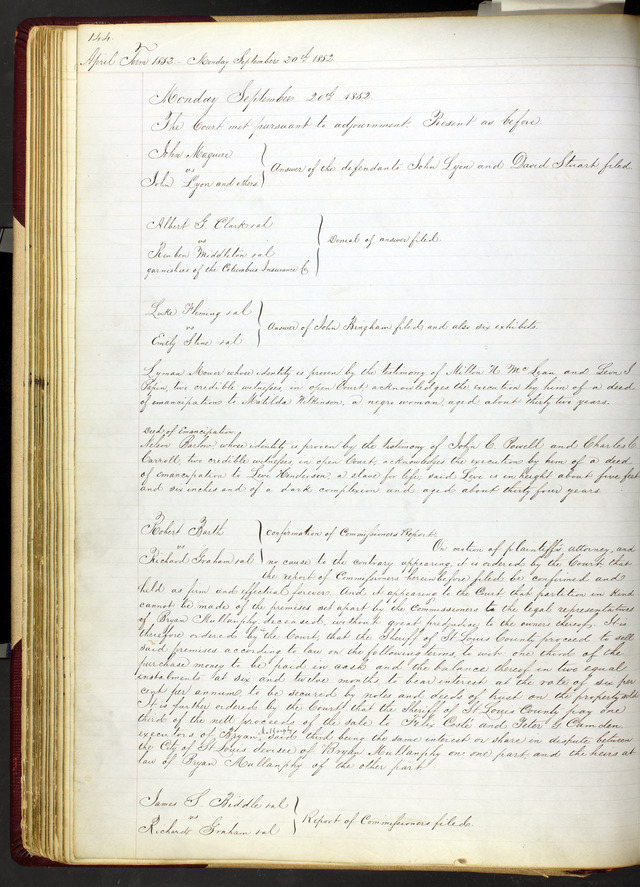 144.
April Term 1852 - Monday September 20th 1852.
Monday September 20th 1852.
The Court met pursuant to adjournment. Present as before
John Maguire
vs
John Lyon and others
Answer of the defendants John Lyon and David Stuart filed
Albert G. Clark et al
vs
Reuben Middleton et al
garnishees of the Columbus Insurance Co
Denial of answer filed.
Luke Fleming et al
vs
Emily Stine et al
Answer of John Bingham filed, and also six exhibits.
Lyman Mower whose identity is proven by the testimony of Milton N. McLean and Leon J.
two credible witnesses, in open Court acknowledges the execution by him of a deed
of emancipation to Matilda Wilkinson, a negro woman, aged about thirty two years.
Deed of Emancipation
Nelson Barlow whose identity is proven by the testimony of John C. Powell and Charles C.
Carroll, two credible witnesses, in open Court, acknowledges the execution by him of a deed
of emancipation to Levi Henderson, a slave for life, said Levi is in height about five feet
and six inches and of a dark complexion and aged about thirty four years
Robert Barth
vs
Richard Graham et al
Confirmation of Commissioners Report.
On motion of plaintiff's attorney, and
no cause to the contrary appearing, it is ordered by the Court, that
the report of Commissioners hereinbefore filed be confirmed and
held as firm and effectual forever. And it appearing to the Court that partition in kind
cannot be made of the premises set apart by the Commissioners to the legal representatives
of Bryan Mullanphy deceased, without great prejudice to the owners thereof. It is
therefore ordered by the Court, that the Sheriff of St Louis County proceed to sell
said premises according to law on the following terms, to wit: one third of the
purchase money to be paid in cash and the balance thereof in two equal
instalments at six and twelve months, to bear interest at the rate of six per
cent per annum, to be secured by notes and deeds of trust on the property sold
It is further ordered by the Court, that the Sheriff of St Louis County pay one
third of the nett proceeds of the sale to Felix Coste and Peter G Camden
executors of Bryan Mullanphy, said third being the same interest or share in dispute between
the City of St Louis devisee of Bryan Mullanphy on one part, and the heirs at
law of Bryan Mullanphy of the other part.
James S. Biddle et al
vs
Richard Graham et al
Report of Commissioners filed.